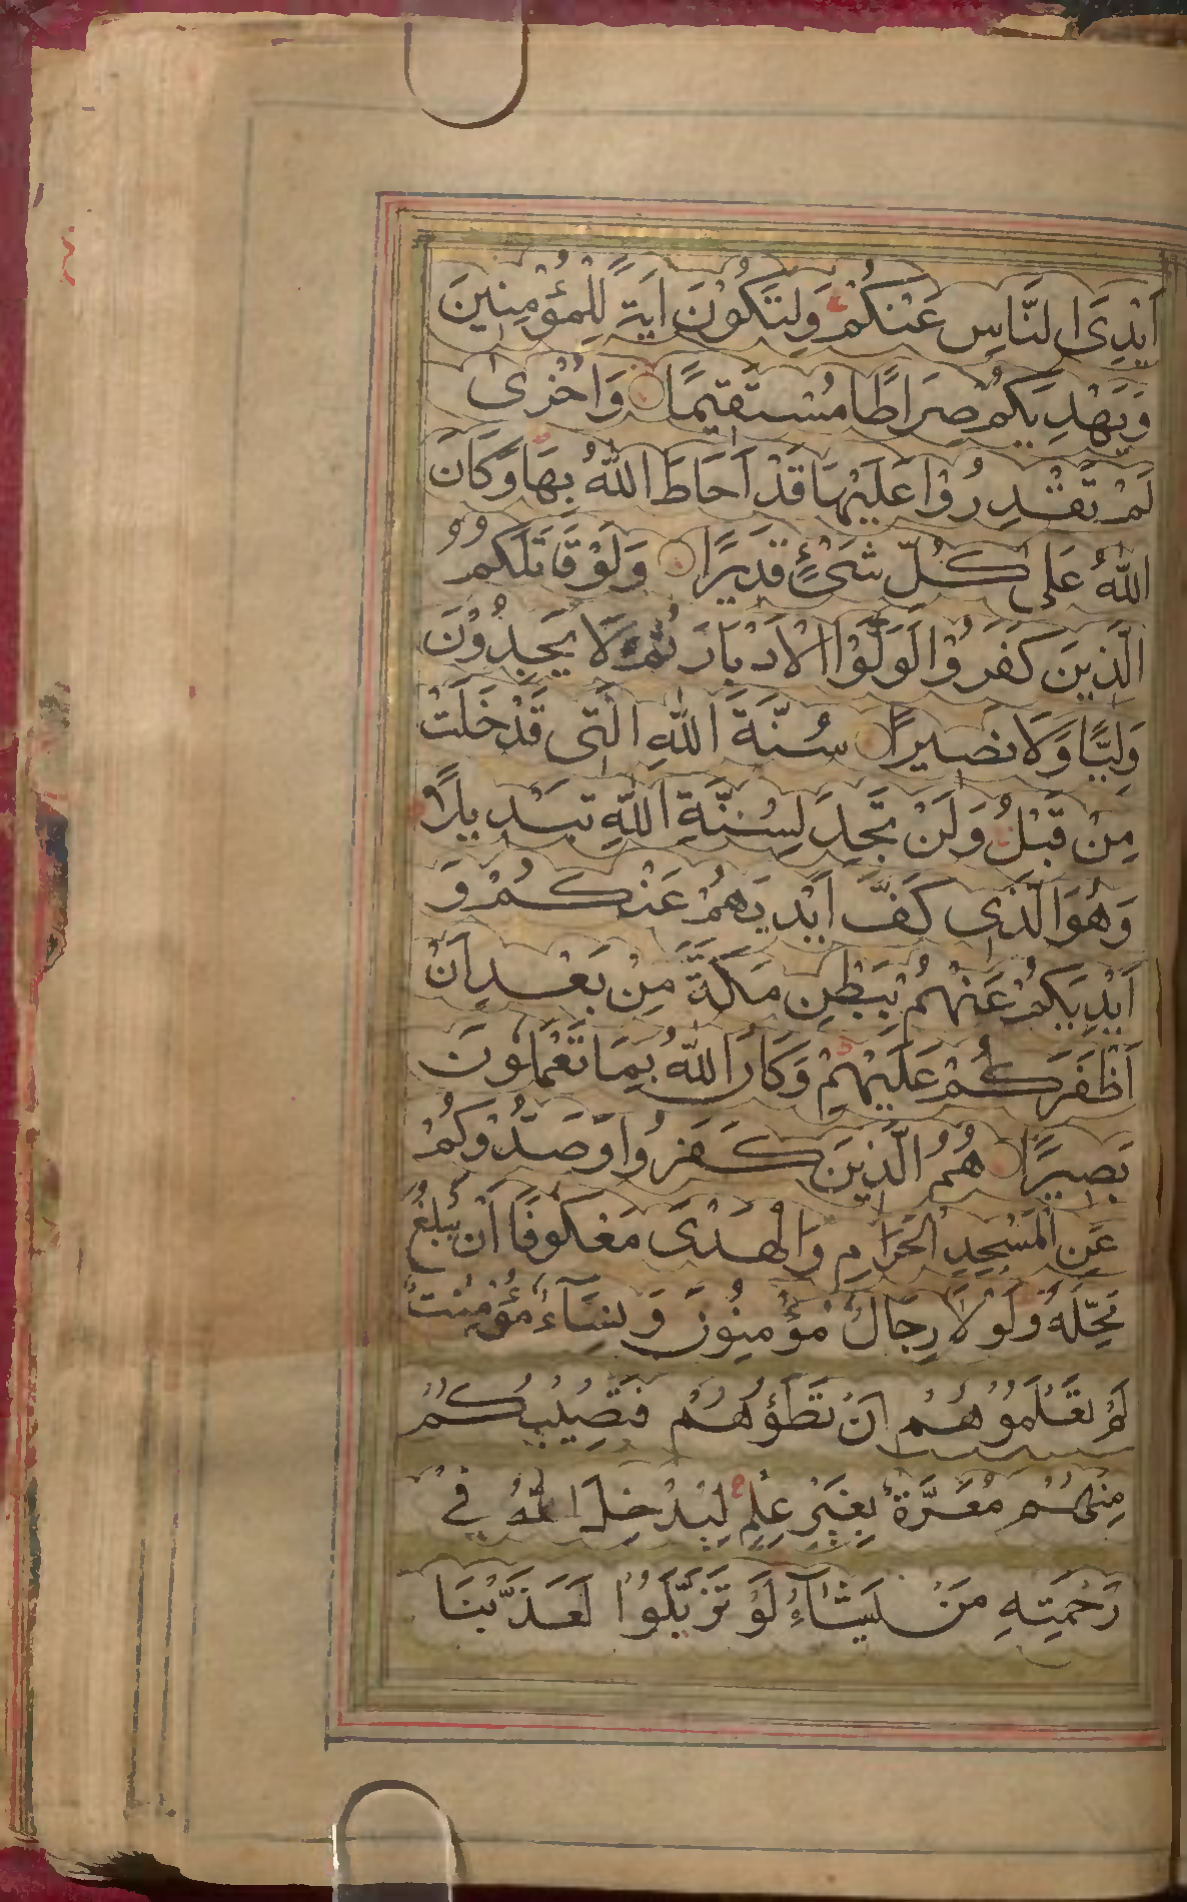 اَيْدِىَ النَّاسِ عَنْكُمْ وَلِتَكُوْنَ اٰيَةً لِّلْمُؤْمِنِينَ
وَيَهْدِيَكُمْ صِرَاطًا مُسْتَقِيْمًا وَاُخْرٰى
لَمْ تَقْدِرُوْا عَلَيْهَا قَدْ اَحَاطَ اللّٰهُ بِهَا وَكَانَ
اللّٰهُ عَلٰى كُلِّ شَىْءٍ قَدِيْرًا وَلَوْ قَاتَلَكُمُ
الَّذِينَ كَفَرُوْا لَوَلَّوُا الْاَدْبَارَ ثُمَّ لَا يَجِدُوْنَ
وَلِيًّا وَّلَا نَصِيْرًا سُنَّةَ اللّٰهِ الَّتِى قَدْ خَلَتْ
مِنْ قَبْلُ وَلَنْ تَجِدَ لِسُنَّةِ اللّٰهِ تَبْدِيلًا
وَهُوَ الَّذِى كَفَّ اَيْدِيَهُمْ عَنْكُمْ وَ
اَيْدِيَكُمْ عَنْهُمْ بِبَطْنِ مَكَّةَ مِنْ بَعْدِ اَنْ
اَظْفَرَكُمْ عَلَيْهِمْ وَكَانَ اللّٰهُ بِمَا تَعْمَلُوْنَ
بَصِيْرًا هُمُ الَّذِينَ كَفَرُوا وَصَدُّوْكُمْ
عَنِ الْمَسْجِدِ الْحَرَامِ وَالْهَدْىَ مَعْكُوفًا اَنْ يَبْلُغَ
مَحِلَّهُ وَلَوْلَا رِجَالٌ مُؤْمِنُوْنَ وَنِسَآءٌ مُؤْمِنٰتٌ
لَمْ تَعْلَمُوْهُمْ اَنْ تَطَؤُهُمْ فَتُصِيْبَكُمْ
مِنْهُمْ مَعَرَّةٌ بِغَيْرِ عِلْمٍ لِيُدْخِلَ اللّٰهُ فِىْ
رَحْمَتِهِ مَنْ يَشَآءُ لَوْ تَزَيَّلُوْا لَعَذَّبْنَا